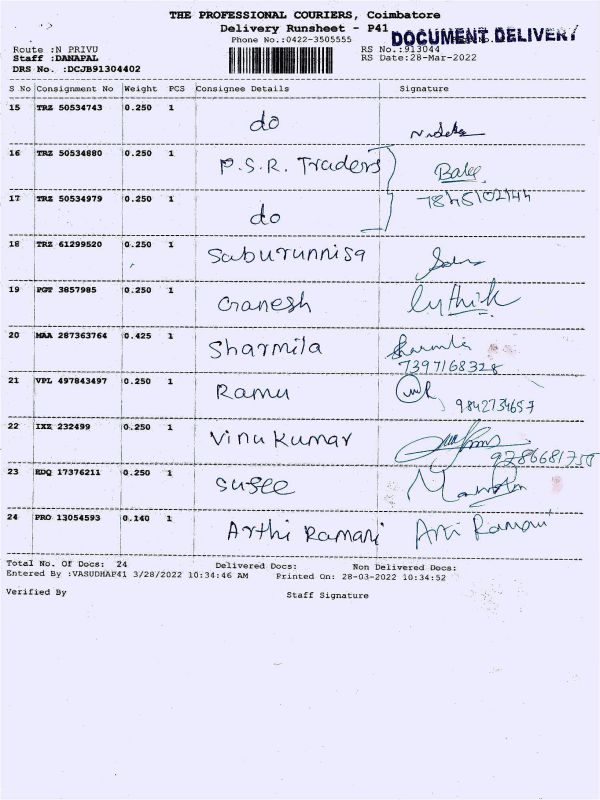 THE PROFESSIONAL COURIERS, Coimbatore
Delivery Runsheet - P41
DOCUMENT DELIVERY
Phone No.:0422-3505555
Route :N PRIVU
RS No.:913044
Staff :DANAPAL
RS Date:28-Mar-2022
DRS No. :DCJB91304402
S No Consignment No Weight PCS Consignee Details Signature
15 TRZ 50534743 0.250 1 do
16 TRZ 50534880 0.250 1 P.S.R. Traders
17 TRZ 50534979 0.250 1 do
18 TRZ 61299520 0.250 1 Saburunnisa
19 PGT 3857985 0.250 1 Ganesh
20 MAA 287363764 0.425 1 Sharmila
7397168328
21 VPL 497843497 0.250 1 Ramu
9842734657
22 IXZ 232499 0.250 1 Vinu Kumar
23 EDQ 17376211 0.250 1 Susee
24 PRO 13054593 0.140 1 Arthi Ramani
Total No. Of Docs: 24 Delivered Docs: Non Delivered Docs:
Entered By :VASUDHAP41 3/28/2022 10:34:46 AM Printed On: 28-03-2022 10:34:52
Verified By Staff Signature